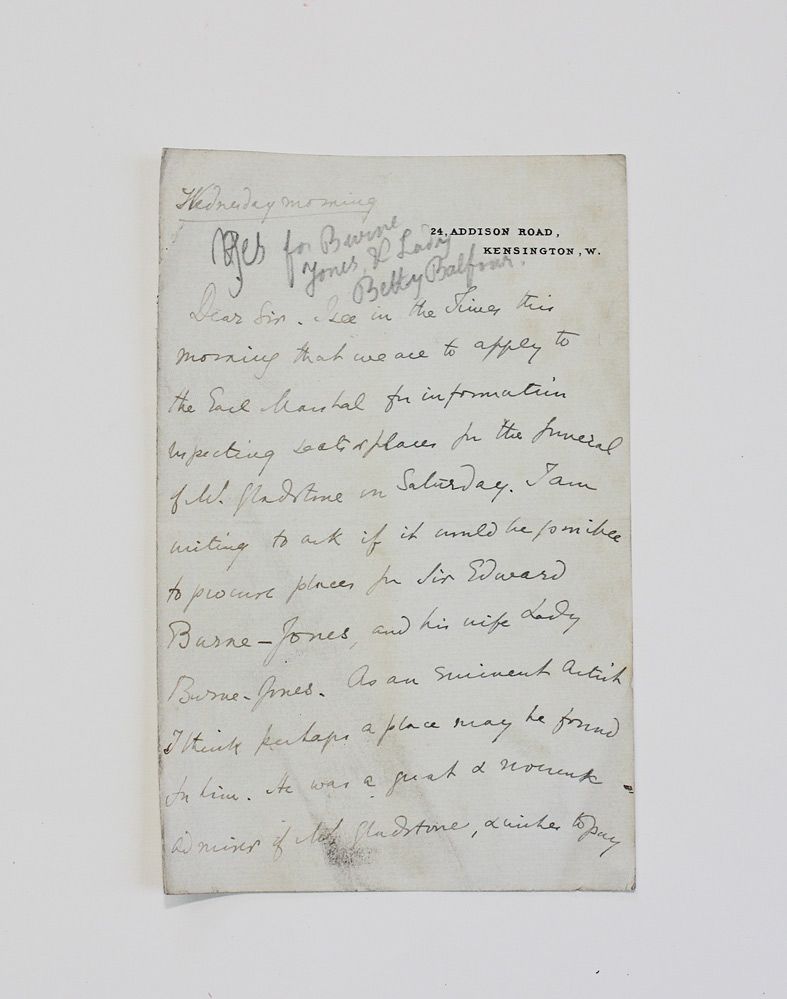 Wednesday morning
24, ADDISON ROAD,
KENSINGTON, W.
Yes for Burne
Jones, & Lady
Betty Balfour.
Dear Sir. I see in the Times this
morning that we are to apply to
the Earl Marshal for information
respecting seats & places for the funeral
of Mr. Gladstone on Saturday. I am
writing to ask if it would be possible
to procure places for Sir Edward
Burne-Jones, and his wife Lady
Burne-Jones. As an eminent Artist
I think perhaps a place may be found
for him. He was a great &
admirer of Mr Gladstone, & wishes to pay